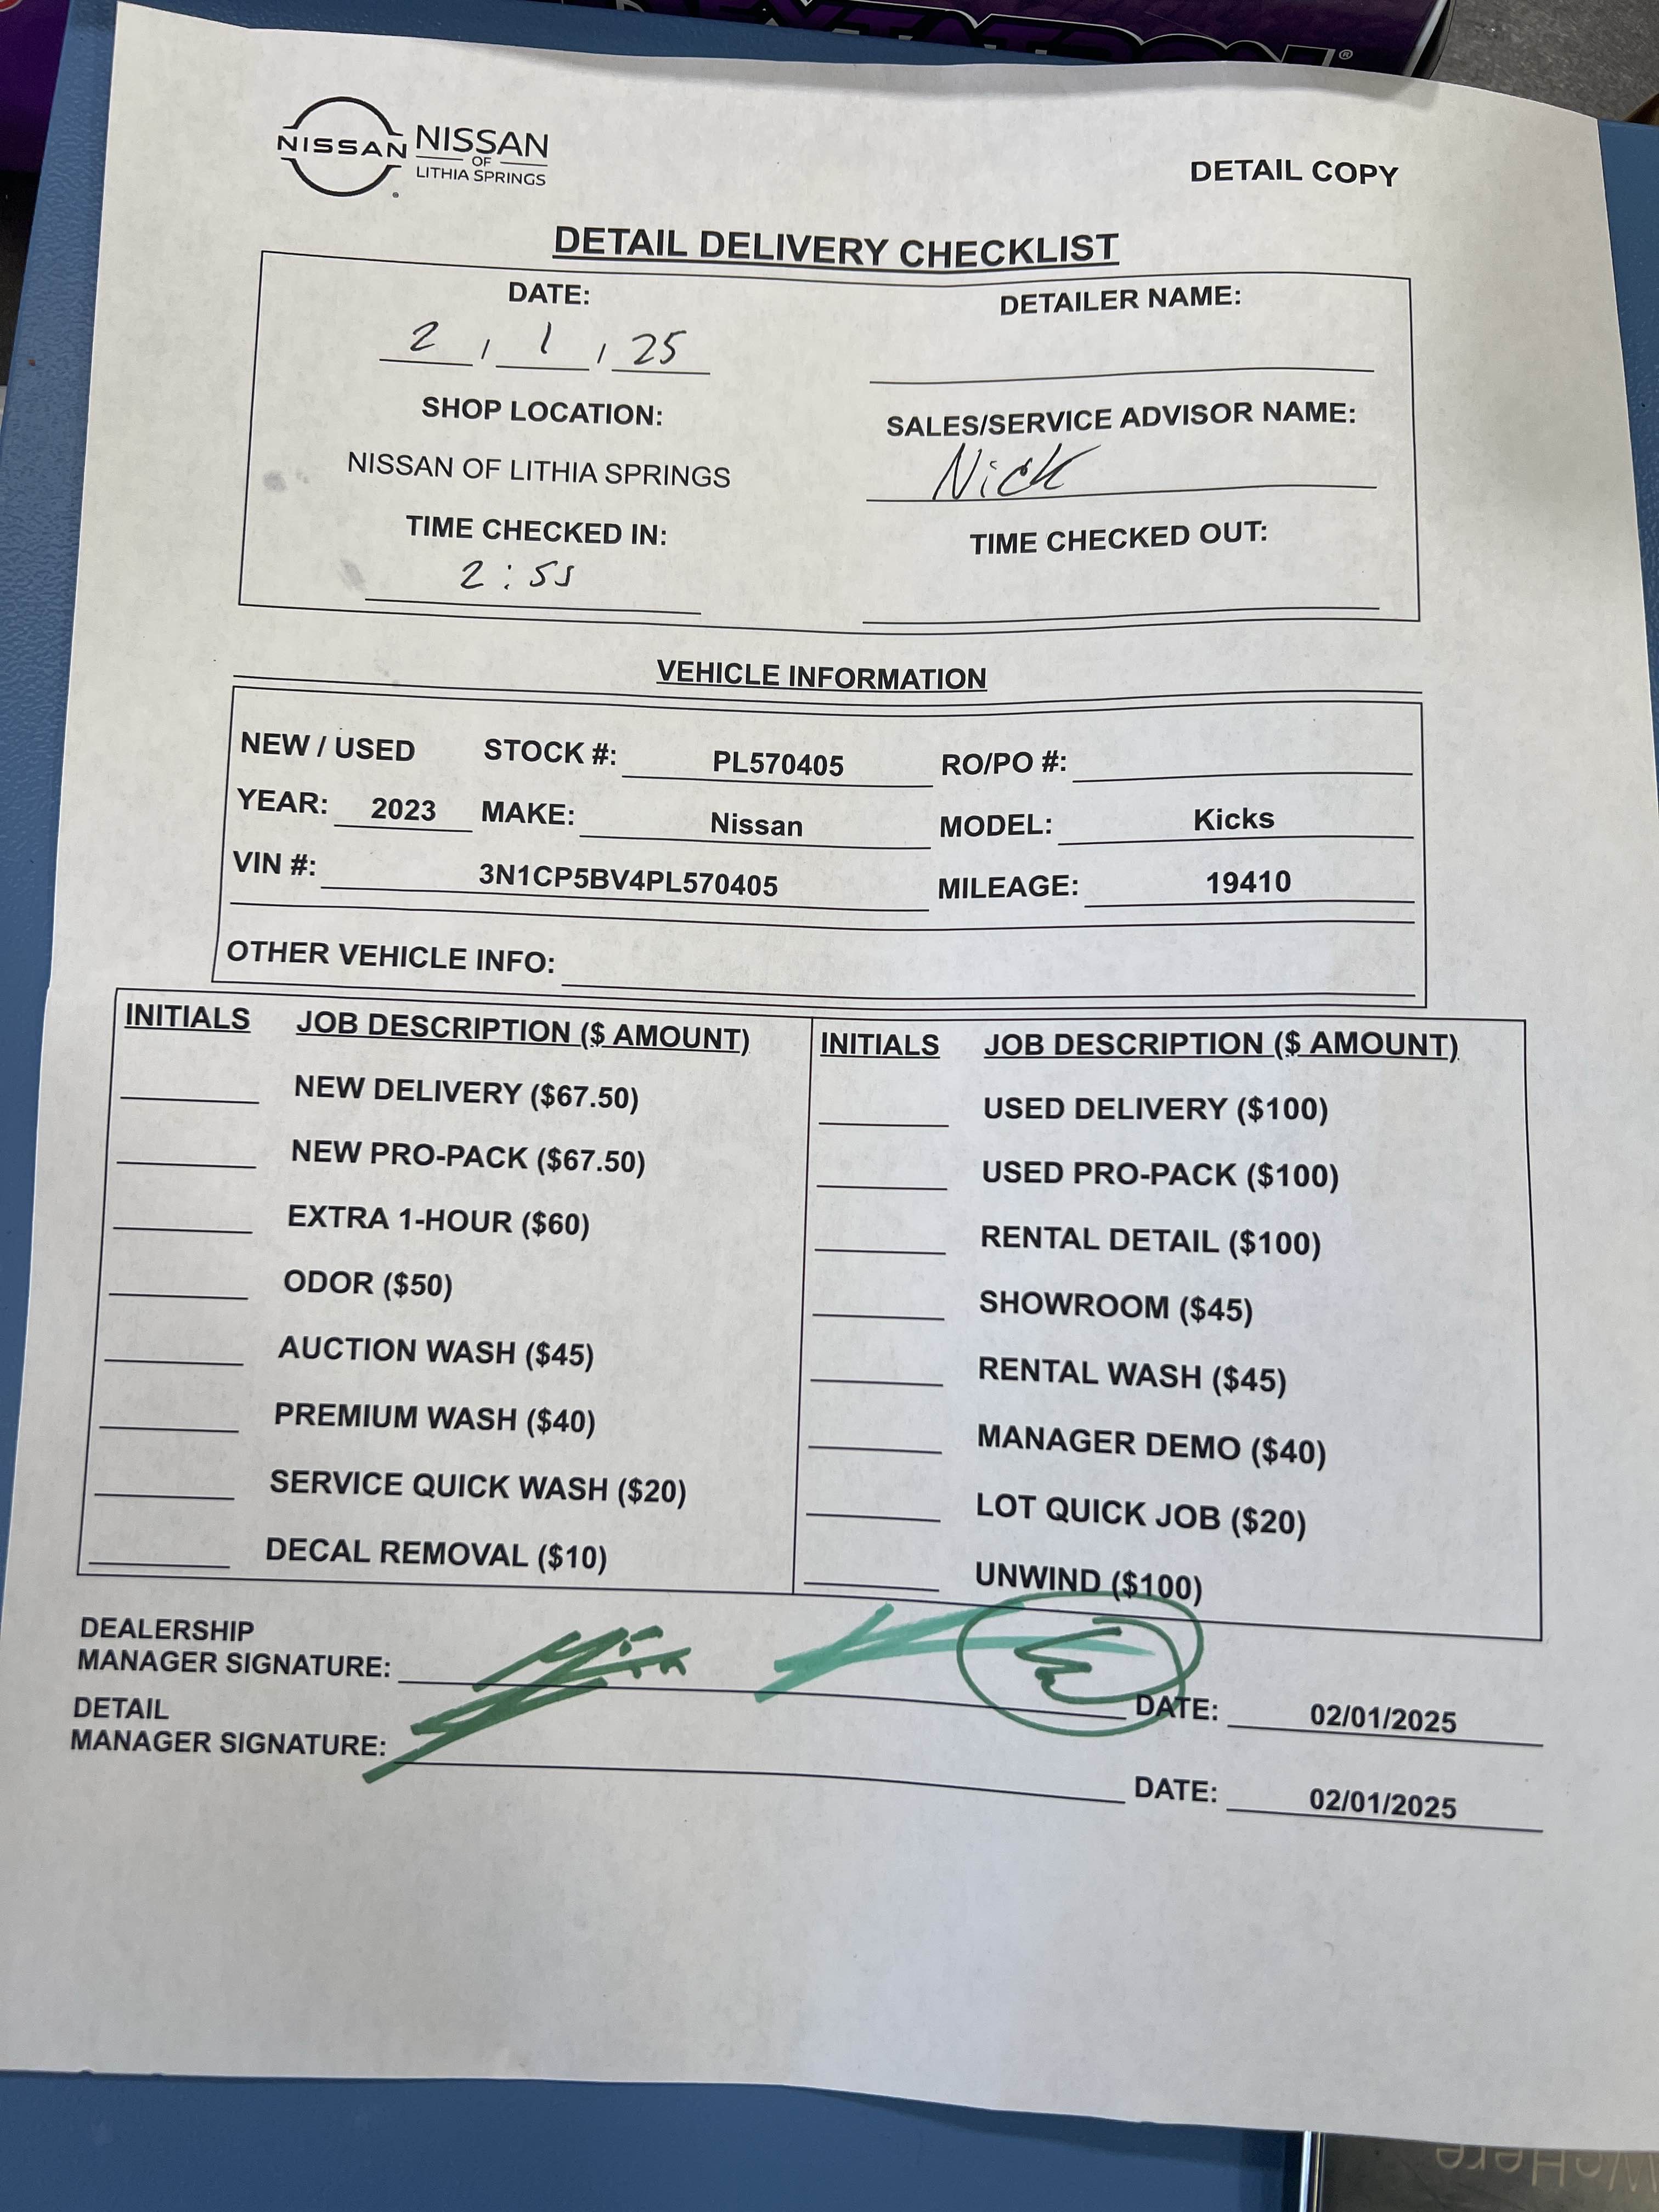 NISSAN
NISSAN
OF
LITHIA SPRINGS
®
DETAIL COPY
DETAIL DELIVERY CHECKLIST
DATE: DETAILER NAME:
2 / 1 / 25
SHOP LOCATION: SALES/SERVICE ADVISOR NAME:
NISSAN OF LITHIA SPRINGS Nick
TIME CHECKED IN: TIME CHECKED OUT:
2:55
VEHICLE INFORMATION
NEW / USED STOCK #: PL570405 RO/PO #:
YEAR: 2023 MAKE: Nissan MODEL: Kicks
VIN #: 3N1CP5BV4PL570405 MILEAGE: 19410
OTHER VEHICLE INFO:
INITIALS JOB DESCRIPTION ($ AMOUNT) INITIALS JOB DESCRIPTION ($ AMOUNT)
NEW DELIVERY ($67.50) USED DELIVERY ($100)
NEW PRO-PACK ($67.50) USED PRO-PACK ($100)
EXTRA 1-HOUR ($60) RENTAL DETAIL ($100)
ODOR ($50) SHOWROOM ($45)
AUCTION WASH ($45) RENTAL WASH ($45)
PREMIUM WASH ($40) MANAGER DEMO ($40)
SERVICE QUICK WASH ($20) LOT QUICK JOB ($20)
DECAL REMOVAL ($10) UNWIND ($100)
DEALERSHIP
MANAGER SIGNATURE: DATE: 02/01/2025
DETAIL
MANAGER SIGNATURE: DATE: 02/01/2025